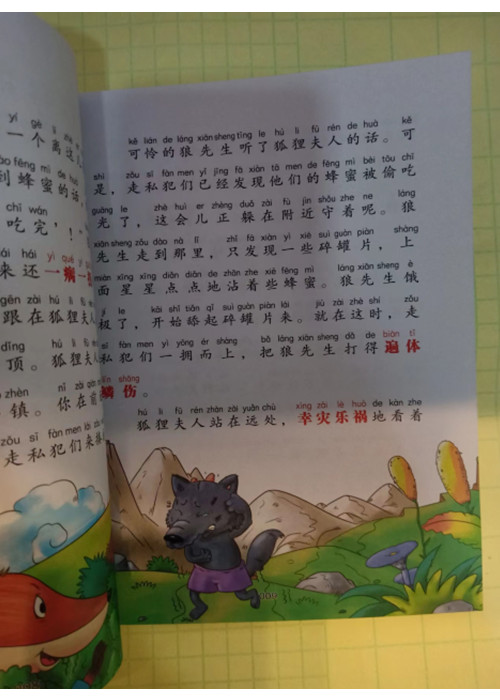 yí gè lí
一个离这儿
fēng mì de huà
到蜂蜜的话
chī wán
吃完'！"
hái yì qué yì
来还一瘸一
gēn zài hú lí fū
跟在狐狸夫
dǐng
顶。狐狸夫人
zhèn nǐ zài qián
镇。你在前
zǒu sī fàn men lái
走私犯们来
kě lián de láng xiān sheng tīng le hú li fū rén de huà kě
可怜的狼先生听了狐狸夫人的话。可
shì zǒu sī fàn men yǐ jīng fā xiàn tā men de fēng mì bèi tōu chī
是，走私犯们已经发现他们的蜂蜜被偷吃
guāng le zhè huì er zhèng duǒ zài fù jìn shǒu zhe ne láng
光了，这会儿正躲在附近守着呢。狼
xiān sheng zǒu dào nà lǐ zhǐ fā xiàn yì xiē suì guàn piàn shàng
先生走到那里，只发现一些碎罐片，上
miàn xīng xīng diǎn diǎn de zhān zhe xiē fēng mì láng xiān sheng è
面星星点点地沾着些蜂蜜。狼先生饿
jí le kāi shǐ tiǎn qǐ suì guàn piàn lái jiù zài zhè shí zǒu
极了，开始舔起碎罐片来。就在这时，走
sī fàn men yì yōng ér shàng bǎ láng xiān sheng dǎ de biàn tǐ
私犯们一拥而上，把狼先生打得遍体
lín shāng
鳞伤。
hú li fū rén zhàn zài yuǎn chù xìng zāi lè huò de kàn zhe
狐狸夫人站在远处，幸灾乐祸地看着